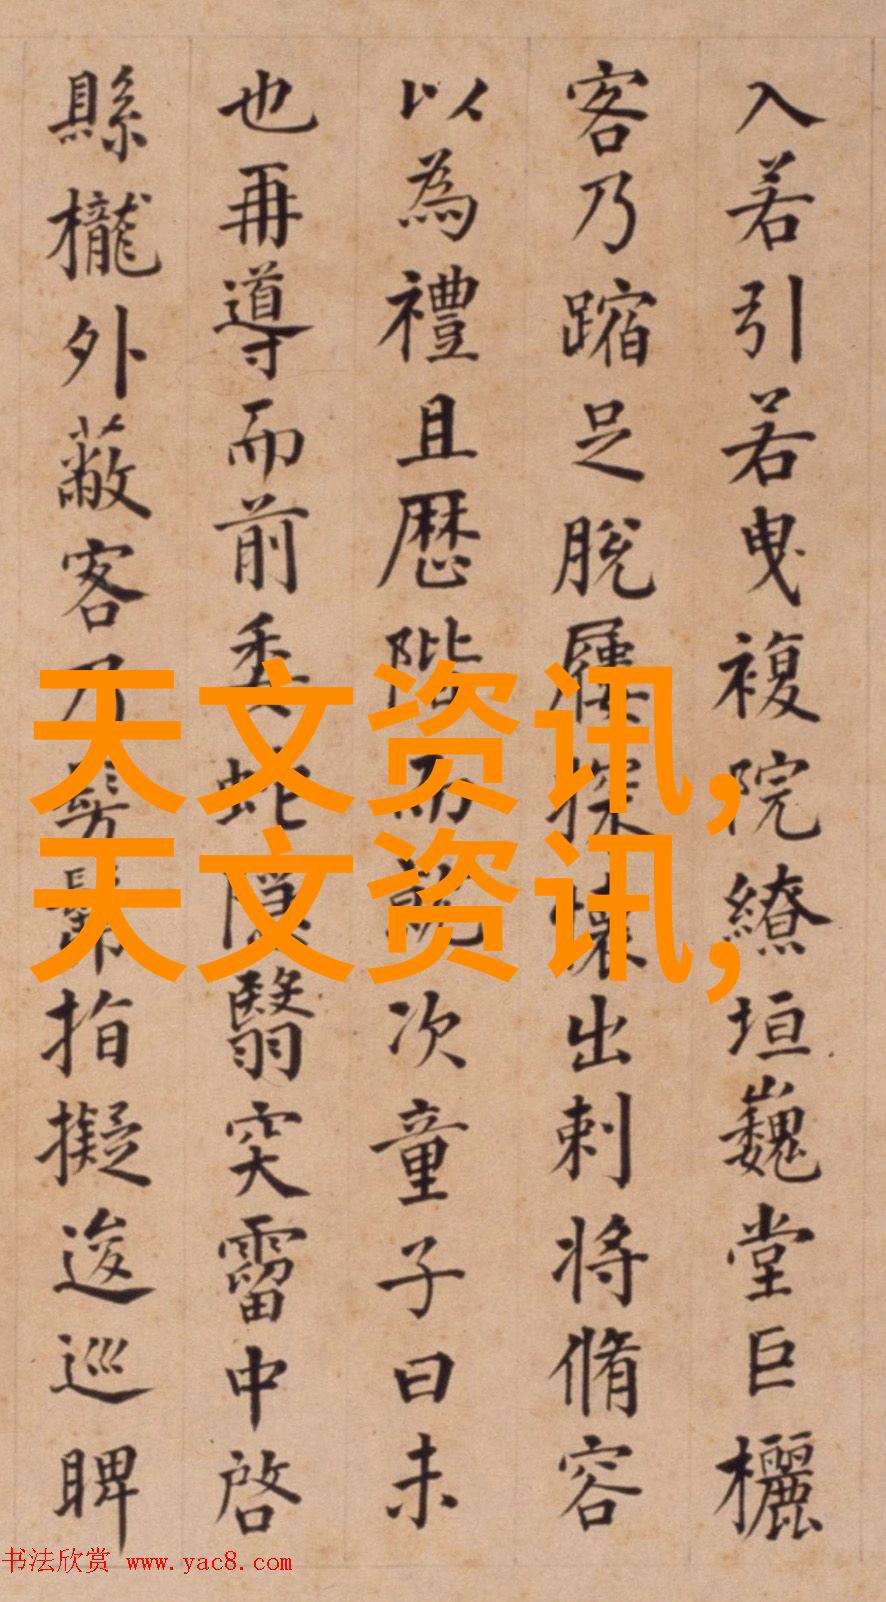 入若引若曳複院繚垣巍堂巨欐
客乃蹜足脫屨探懷出刺將脩容
以為禮且歷階而就次童子曰未
也再導而前委蛇隱翳突霤中啓
縣櫳外蔽客乃髣髴指擬逡巡睥
天文资讯,
天文资讯,
书法欣赏 www.yac8.com